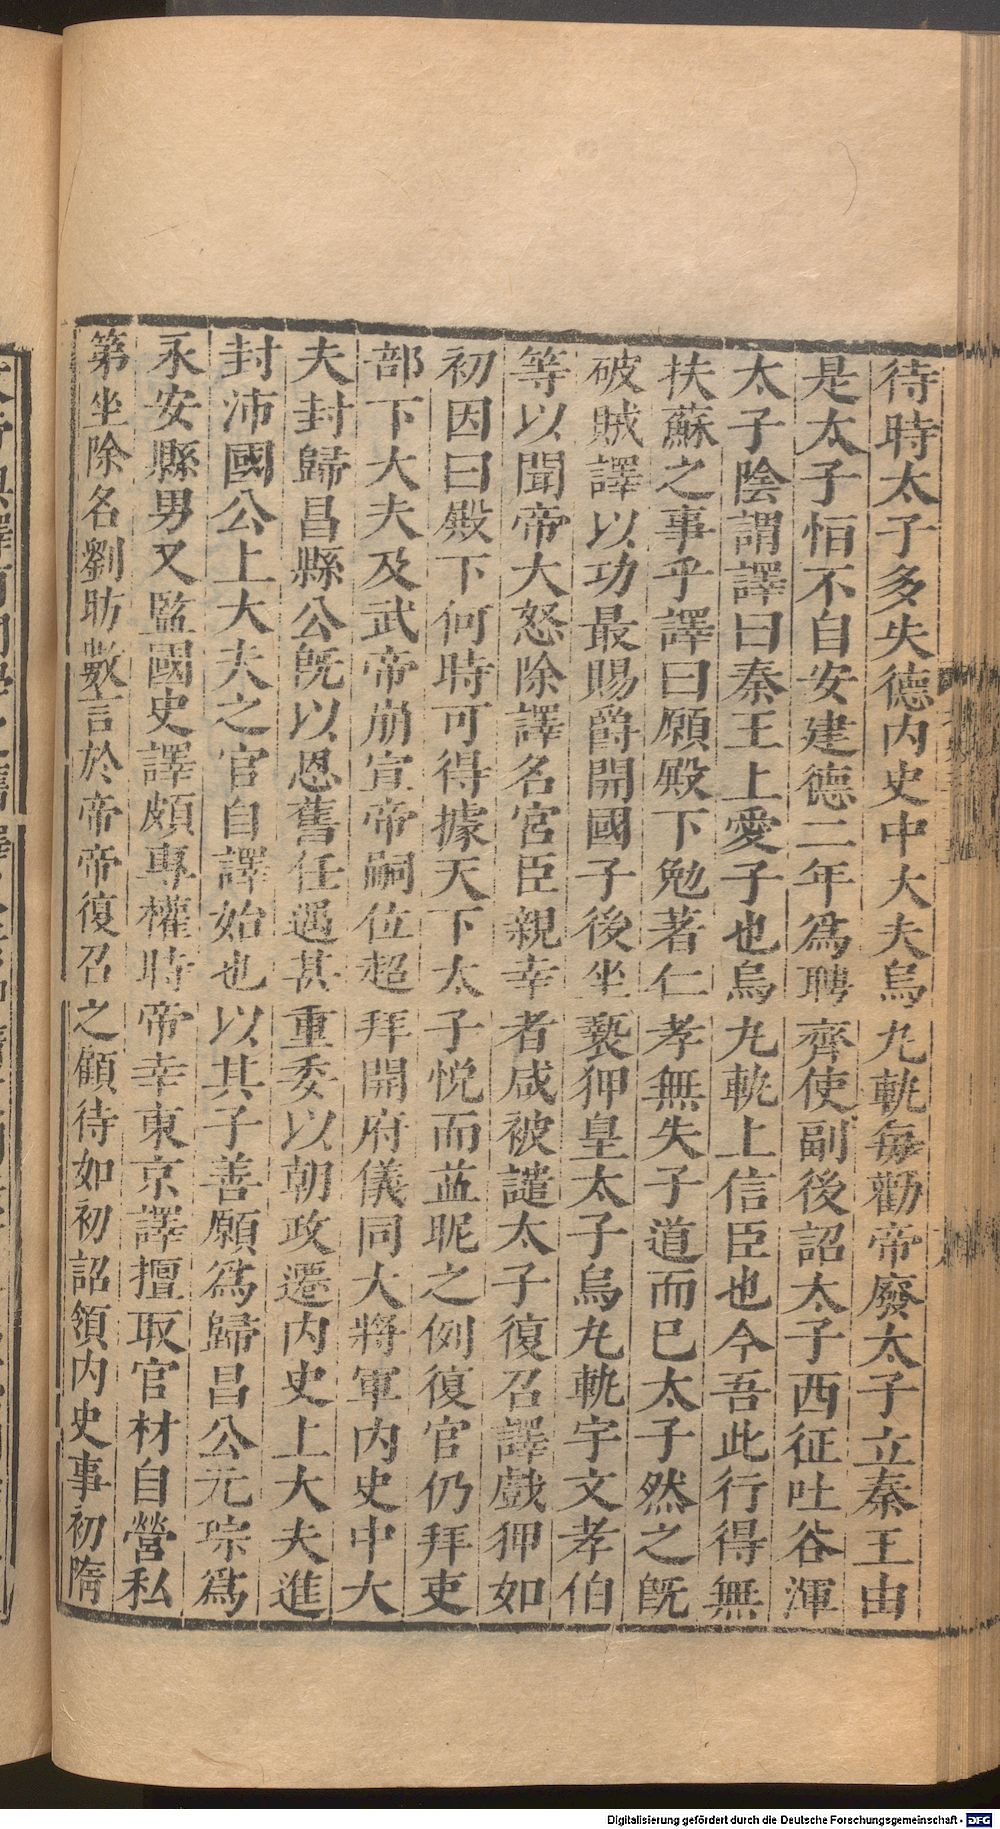 待時太子多失德内史中大夫烏丸軌每勸帝廢太子立秦王由
是太子恒不自安建德二年爲聘齊使副後詔太子西征吐谷渾
太子陰謂譯曰秦王上愛子也烏丸軌上信臣也今吾此行得無
扶蘇之事乎譯曰願殿下勉著仁孝無失子道而已太子然之旣
破賊譯以功最賜爵開國子後坐褻狎皇太子烏丸軌宇文孝伯
等以聞帝大怒除譯名宮臣親幸者咸被譴太子復召譯戲狎如
初因曰殿下何時可得據天下太子悅而益昵之例復官仍拜吏
部下大夫及武帝崩宣帝嗣位超拜開府儀同大將軍内史中大
夫封歸昌縣公旣以恩舊任遇甚重委以朝政遷内史上大夫進
封沛國公上大夫之官自譯始也以其子善願爲歸昌公元琮爲
永安縣男又監國史譯頗專權時帝幸東京譯擅取官材自營私
第坐除名劉昉數言於帝帝復召之顧待如初詔領内史事初隋
Digitalisierung gefördert durch die Deutsche Forschungsgemeinschaft - DFG